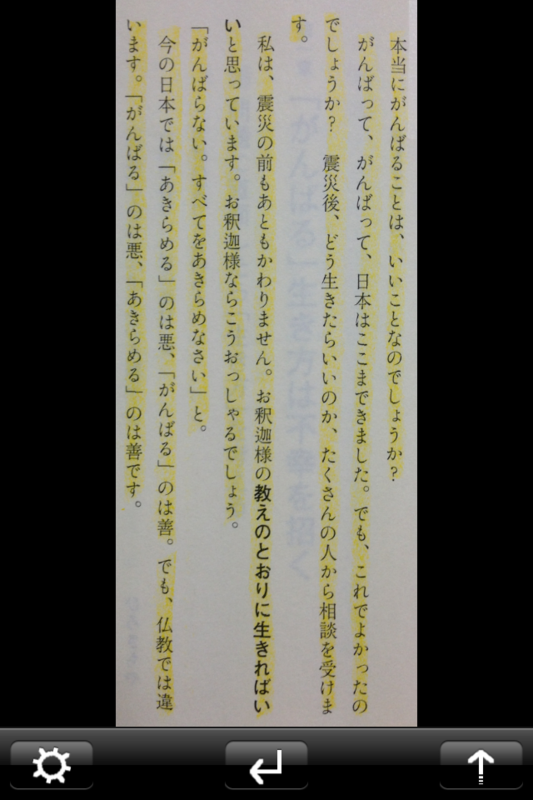 本当にがんばることは、いいことなのでしょうか?
がんばって、がんばって、日本はここまできました。でも、これでよかったの
でしょうか? 震災後、どう生きたらいいのか、たくさんの人から相談を受けま
す。
私は、震災の前もあともかわりません。お釈迦様の教えのとおりに生きればい
いと思っています。お釈迦様ならこうおっしゃるでしょう。
「がんばらない。すべてをあきらめなさい」と。
今の日本では「あきらめる」のは悪、「がんばる」のは善。でも、仏教では違
います。「がんばる」のは悪、「あきらめる」のは善です。